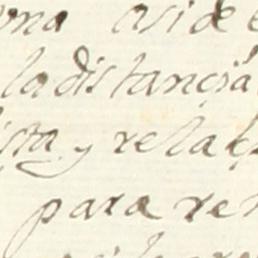 ona asi de
ladistançia
ista y relaç
para rel